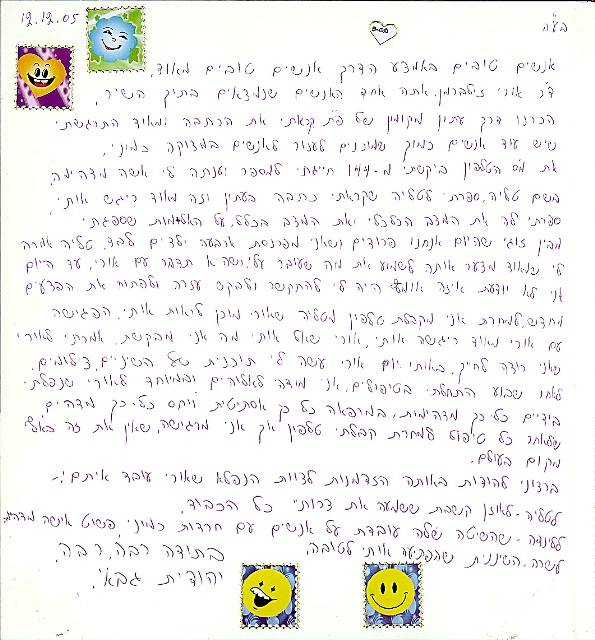 12.12.05
בע"ה
אנשים טובים באמצע הדרך אנשים טובים מאוד,
ד"ר אורי זילברמן, אתה אחד האנשים שנמצאים בתיק השיר,
הכרנו דרך עתון מקומון של פ"ת, קראתי את הכתבה ומאוד התרגשתי
שיש עוד אנשים כמוך שמוכנים לעזור לאנשים במצוקה כמוני,
את מס' הטלפון ביקשתי מ-144 חייגתי למספר וענתה לי אשה מדהימה,
בשם טליה, ספרתי לטליה שקראתי כתבה בעתון וזה מאוד ריגש אותי,
ספרתי לה את המצב הכלכלי ואת המצב בכלל, על האלימות שספגתי
מבין זוגי שהיום אנחנו פרודים ושאני מפרנסת ארבעה ילדים לבד, טליה אמרה
לי שמאוד מצער אותה לשמוע את מה שעובר עלי, ושהיא תדבר עם אורי, עד היום
אני לא יודעת איזה אומץ היה לי להתקשר ולבקש עזרה ולפתוח את הפצעים
מחדש, למחרת אני מקבלת טלפון מטליה שאורי מוכן לראות אותי, הפגישה
עם אורי מאוד ריגשה אותי, אורי שאל אותי מה אני מבקשת, אמרתי לאורי
שאני רוצה לחייך, באותו יום אורי עשה לי תוכנית של השיניים, צילומים,
לאחר שבוע התחלתי בטיפולים, אני מודה לאלוהים ובמיוחד לאורי שנפלתי
בידיים כל-כך מדהימות, במרפאה כל כך אסתטית ויחס כל-כך מדהים,
שלאחר כל טיפול למחרת קבלתי טלפון איך אני מרגישה, שאין את זה באף
מקום בעולם.
ברצוני להודות באותה הזדמנות לצוות הנפלא שאורי עובד איתם:-
לטליה - לאוזן קשבת ששמעה את צרותי כל הכבוד,
ללינדה - שהשיטה שלה עובדת על אנשים עם חרדות כמוני, פשוט אישה מדהימה,
לשרה - השיננית שהפתיעה אותי לטובה,
בתודה רבה, רבה,
יהודית גבאי.